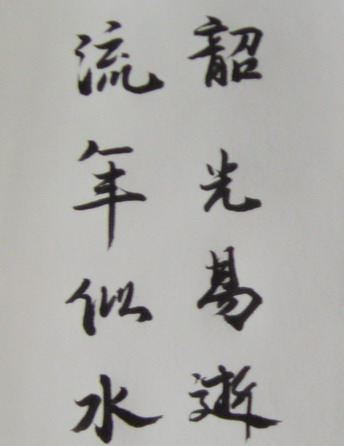 韶光易逝
流年似水